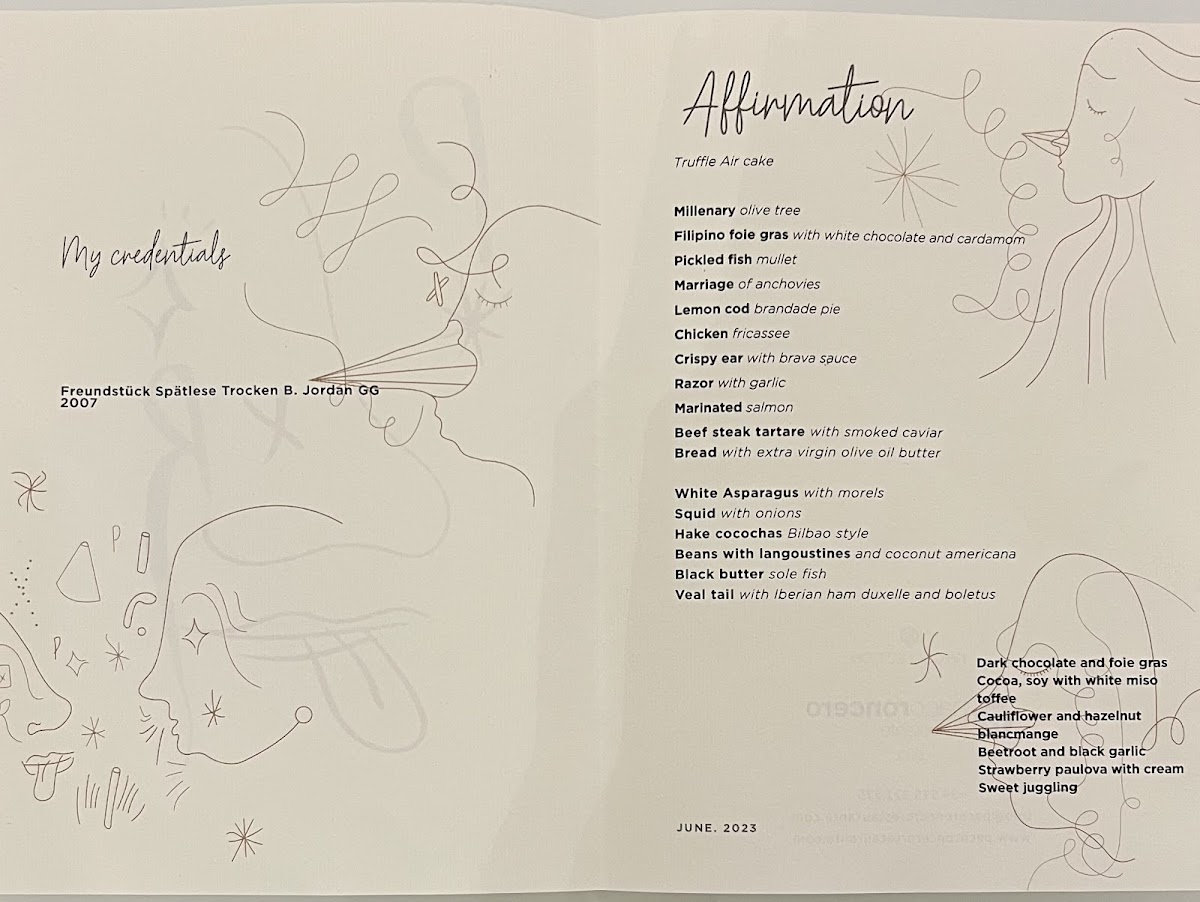 My credentials
Freundstück Spätlese Trocken B. Jordan GG
2007
Affirmation
Truffle Air cake
Millenary olive tree
Filipino foie gras with white chocolate and cardamom
Pickled fish mullet
Marriage of anchovies
Lemon cod brandade pie
Chicken fricassee
Crispy ear with brava sauce
Razor with garlic
Marinated salmon
Beef steak tartare with smoked caviar
Bread with extra virgin olive oil butter
White Asparagus with morels
Squid with onions
Hake cocochas Bilbao style
Beans with langoustines and coconut americana
Black butter sole fish
Veal tail with Iberian ham duxelle and boletus
Dark chocolate and foie gras
Cocoa, soy with white miso
toffee
Cauliflower and hazelnut
blancmange
Beetroot and black garlic
Strawberry paulova with cream
Sweet juggling
JUNE. 2023